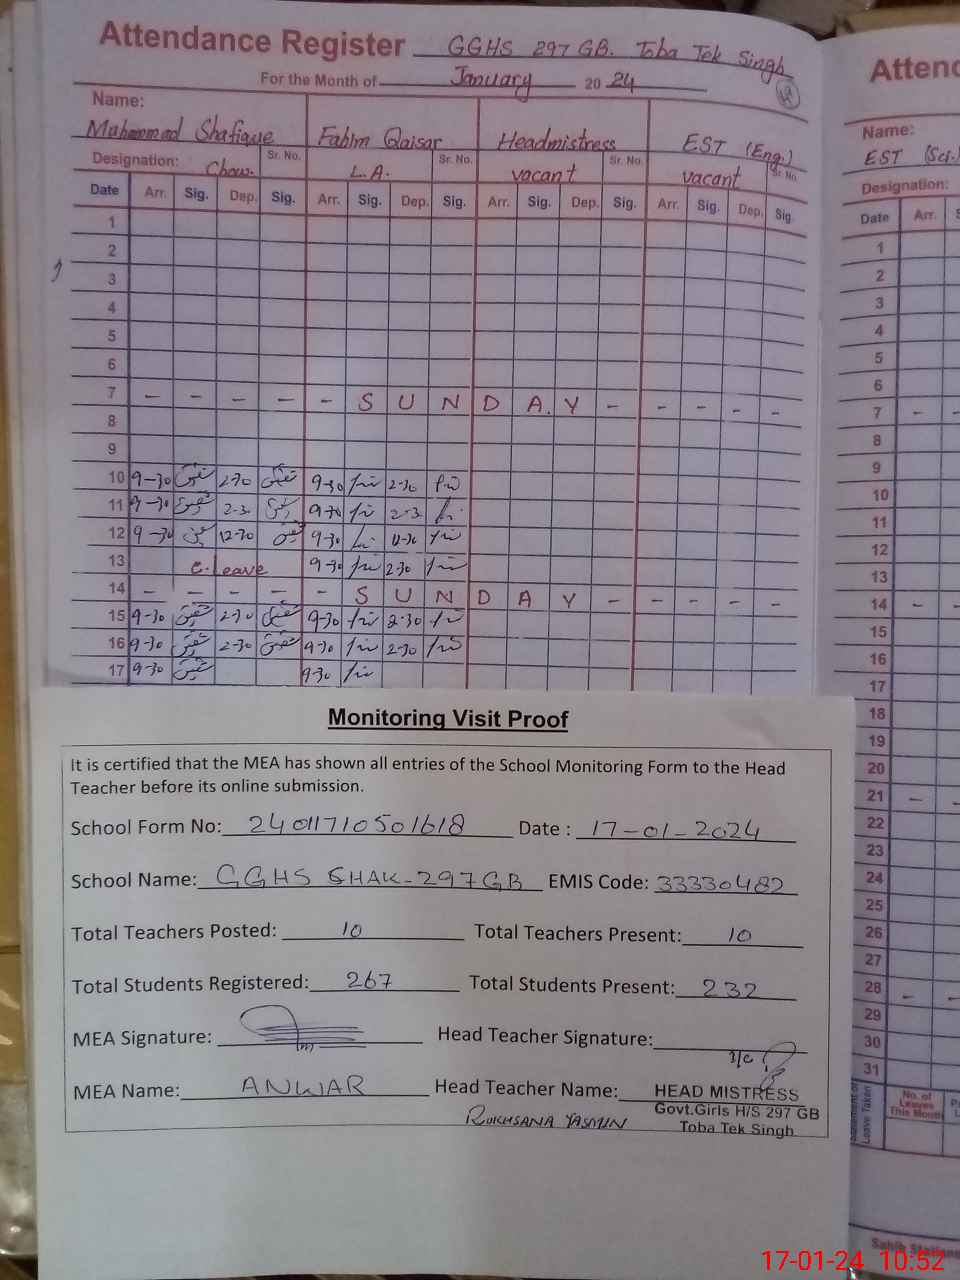 Attendance Register GGHS 297 GB. Toba Tek Singh
For the Month of January 20 24
Name:
Muhammad Shafique Fahim Qaisar Headmistress EST (Eng.)
Designation: Chow. Sr. No. L.A. Sr. No. vacant Sr. No. vacant Sr. No.
Date Arr. Sig. Dep. Sig. Arr. Sig. Dep. Sig. Arr. Sig. Dep. Sig. Arr. Sig. Dep. Sig.
1
2
3
4
5
6
7 - - - - - S U N D A Y - - - - -
8
9
10 9-30 شفیق 2-30 شفیق 9-30 2-30
11 9-30 شفیق 2-30 شفیق 9-30 2-30
12 9-30 شفیق 12-30 شفیق 9-30 12-30
13 C-Leave 9-30 2-30
14 - - - - - S U N D A Y - - - - -
15 9-30 شفیق 2-30 شفیق 9-30 2-30
16 9-30 شفیق 2-30 شفیق 9-30 2-30
17 9-30 شفیق 9-30
Monitoring Visit Proof
It is certified that the MEA has shown all entries of the School Monitoring Form to the Head
Teacher before its online submission.
School Form No: 24011710501618 Date : 17-01-2024
School Name: GGHS CHAK-297GB EMIS Code: 33330482
Total Teachers Posted: 10 Total Teachers Present: 10
Total Students Registered: 267 Total Students Present: 232
MEA Signature: Head Teacher Signature:
I/C
MEA Name: ANWAR Head Teacher Name: HEAD MISTRESS
RUKHSANA YASMIN Govt.Girls H/S 297 GB
Toba Tek Singh
Atten
Name:
EST (Sci.)
Designation:
Date Arr.
1
2
3
4
5
6
7 - -
8
9
10
11
12
13
14 - -
15
16
17
18
19
20
21 - -
22
23
24
25
26
27
28 - -
29
30
31
Leave Taken
No. of
Leaves
This Month
17-01-24 10:52